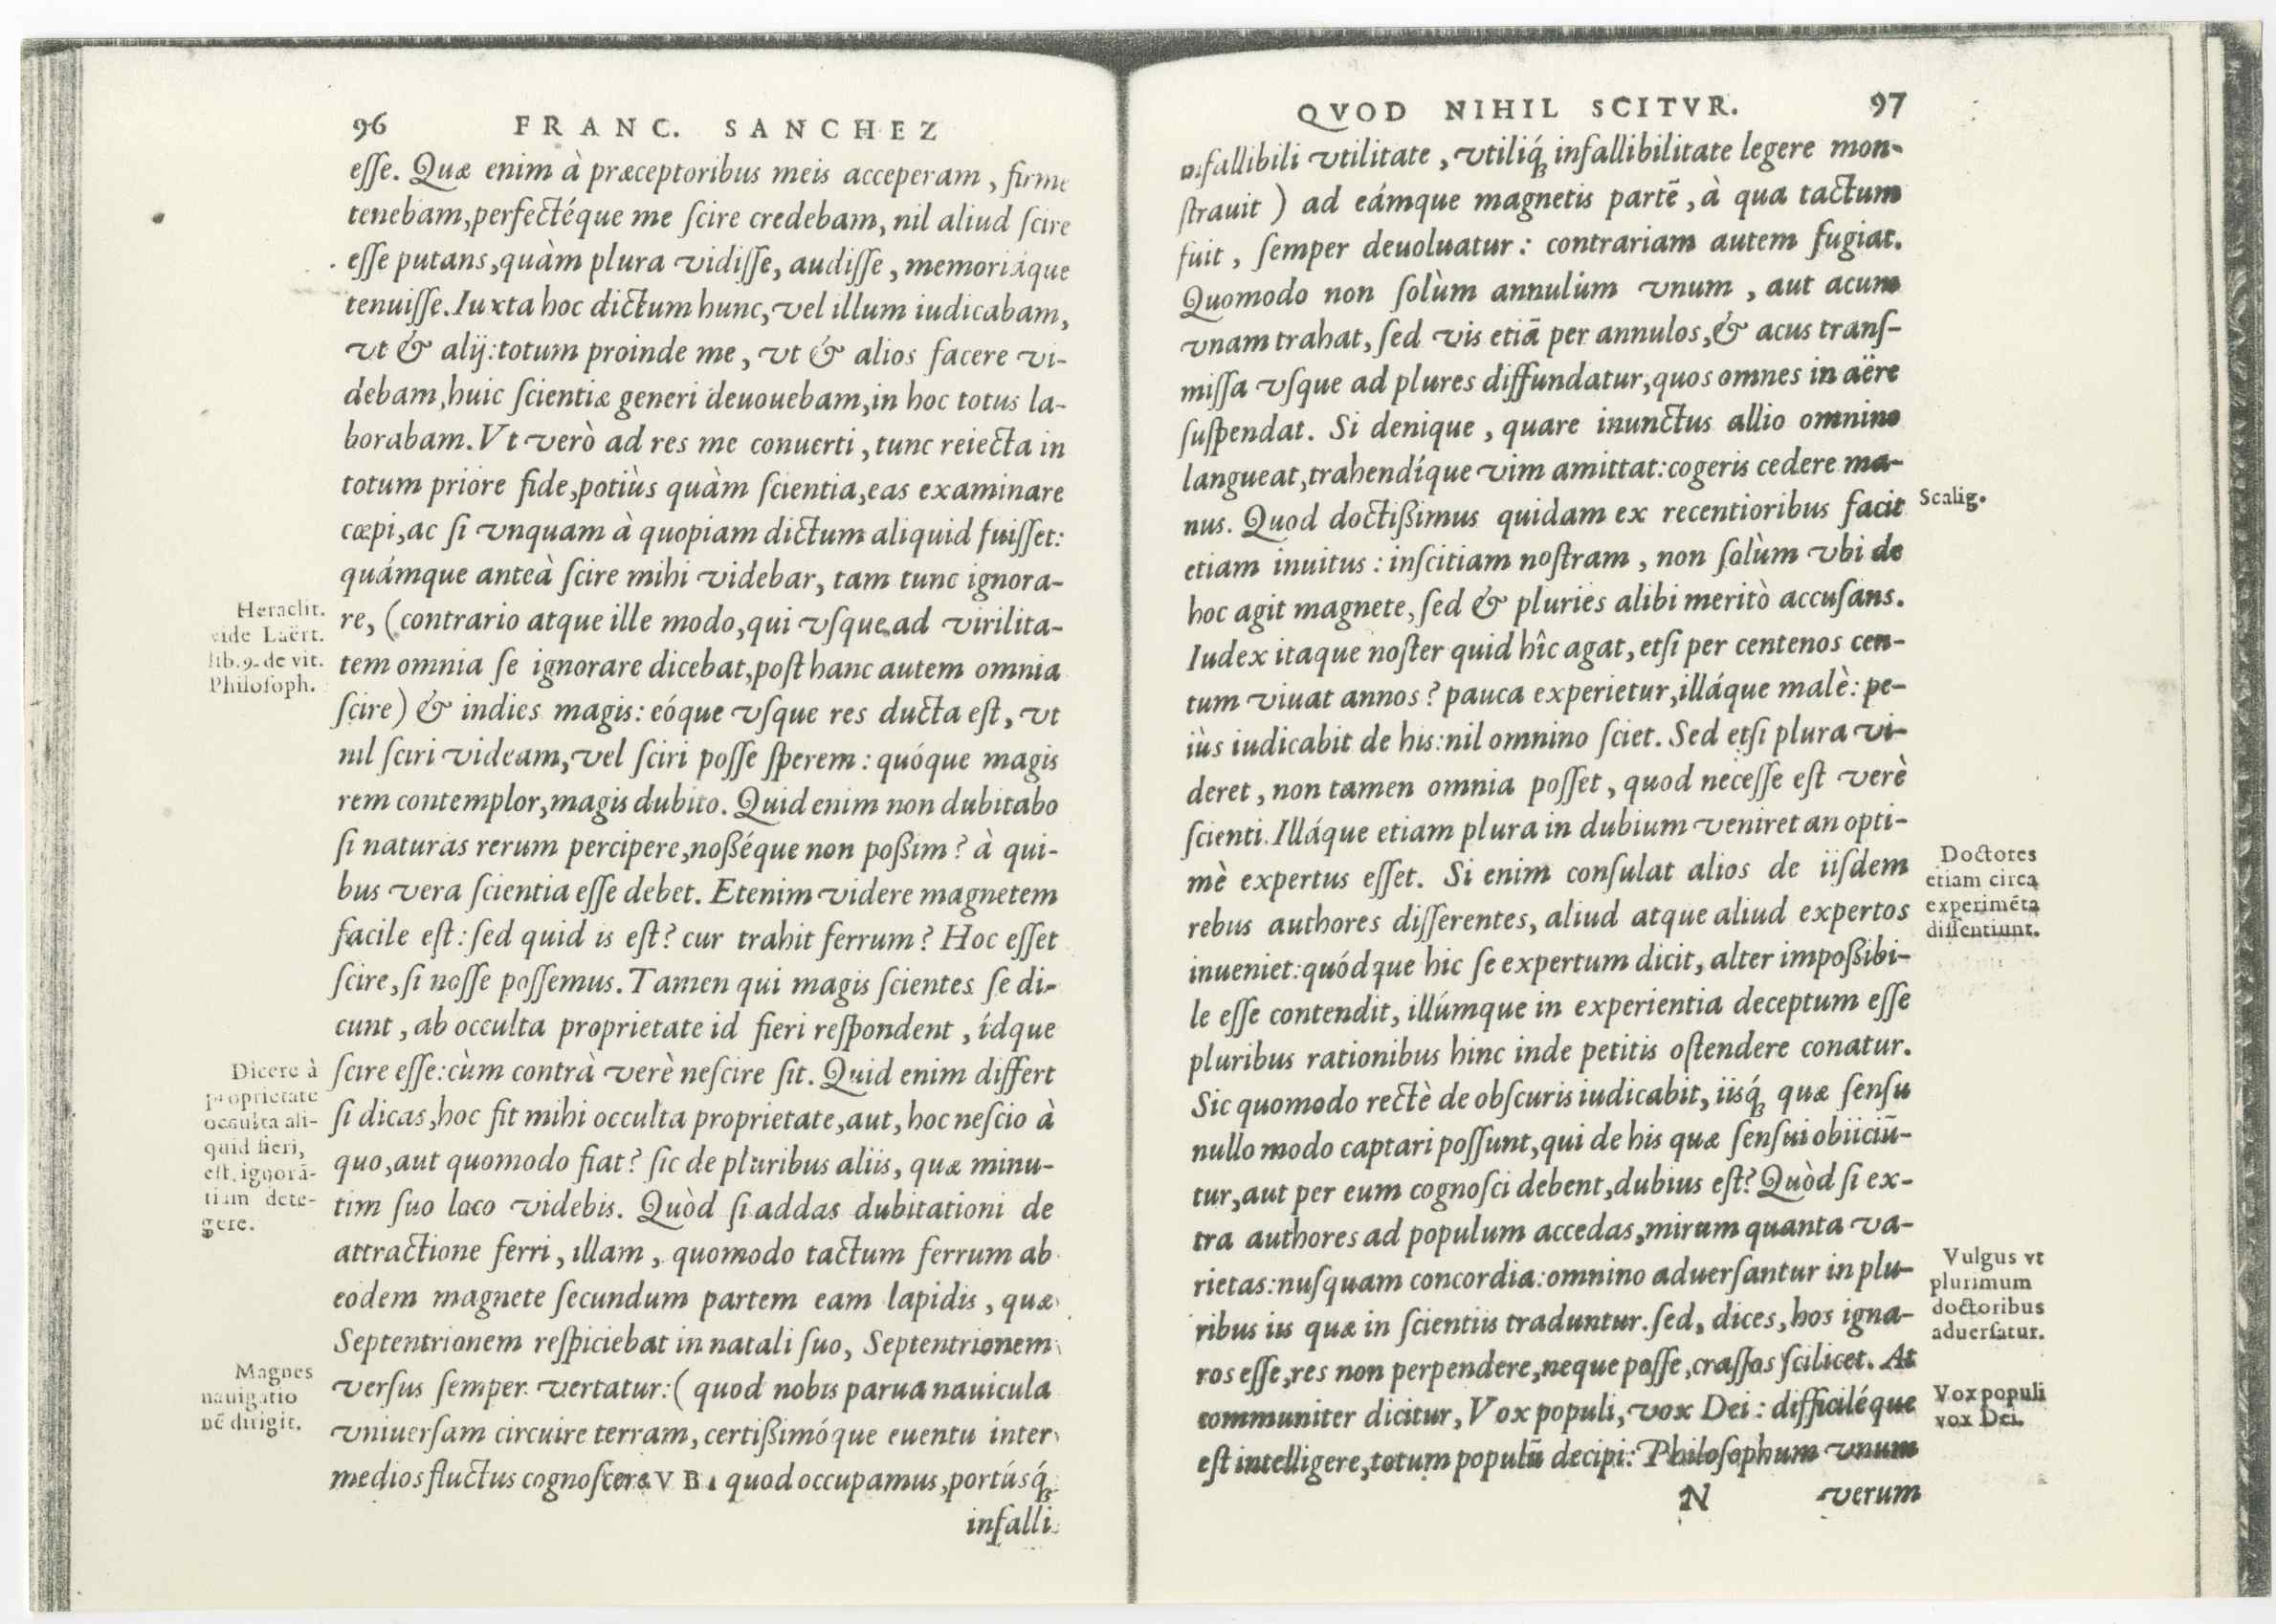 96 FRANC. SANCHEZ
eſſe. Quæ enim à præceptoribus meis acceperam, firme
tenebam, perfectéque me ſcire credebam, nil aliud ſcire
eſſe putans, quàm plura vidiſſe, audiſſe, memoriáque
tenuiſſe. Iuxta hoc dictum hunc, vel illum iudicabam,
vt & alij: totum proinde me, vt & alios facere vi-
debam, huic ſcientiæ generi deuouebam, in hoc totus la-
borabam. Vt verò ad res me conuerti, tunc reiecta in
totum priore fide, potiùs quàm ſcientia, eas examinare
cœpi, ac ſi vnquam à quopiam dictum aliquid fuiſſet:
quámque anteà ſcire mihi videbar, tam tunc ignora-
re, (contrario atque ille modo, qui vſque ad virilita-
tem omnia ſe ignorare dicebat, poſt hanc autem omnia
ſcire) & indies magis: eóque vſque res ducta eſt, vt
nil ſciri videam, vel ſciri poſſe ſperem: quóque magis
rem contemplor, magis dubito. Quid enim non dubitabo
ſi naturas rerum percipere, noßéque non poßim? à qui-
bus vera ſcientia eſſe debet. Etenim videre magnetem
facile eſt: ſed quid is eſt? cur trahit ferrum? Hoc eſſet
ſcire, ſi noſſe poſſemus. Tamen qui magis ſcientes ſe di-
cunt, ab occulta proprietate id fieri reſpondent, ídque
ſcire eſſe: cùm contrà verè neſcire ſit. Quid enim differt
ſi dicas, hoc fit mihi occulta proprietate, aut, hoc neſcio à
quo, aut quomodo fiat? ſic de pluribus aliis, quæ minu-
tim ſuo loco videbis. Quòd ſi addas dubitationi de
attractione ferri, illam, quomodo tactum ferrum ab
eodem magnete ſecundum partem eam lapidis, quæ
Septentrionem reſpiciebat in natali ſuo, Septentrionem
verſus ſemper vertatur: (quod nobis parua nauicula
vniuerſam circuire terram, certißimóque euentu inter
medios fluctus cognoſcere VBI quod occupamus, portúsq́ꝫ
infalli
Heraclit.
vide Laërt.
lib. 9. de vit.
Philoſoph.
Dicere à
proprietate
occulta ali-
quid fieri,
eſt, ignorā-
tiam dete-
gere.
Magnes
nauigatio
nē dirigit.
QVOD NIHIL SCITVR. 97
infallibili vtilitate, vtiliq́ꝫ infallibilitate legere mon-
ſtrauit) ad eámque magnetis partē, à qua tactum
fuit, ſemper deuoluatur: contrariam autem fugiat.
Quomodo non ſolùm annulum vnum, aut acum
vnam trahat, ſed vis etiā per annulos, & acus tranſ-
miſſa vſque ad plures diffundatur, quos omnes in aëre
ſuſpendat. Si denique, quare inunctus allio omnino
langueat, trahendíque vim amittat: cogeris cedere ma-
nus. Quod doctißimus quidam ex recentioribus facit
etiam inuitus: inſcitiam noſtram, non ſolùm vbi de
hoc agit magnete, ſed & pluries alibi meritò accuſans.
Iudex itaque noſter quid hîc agat, etſi per centenos cen-
tum viuat annos? pauca experietur, illáque malè: pe-
iùs iudicabit de his: nil omnino ſciet. Sed etſi plura vi-
deret, non tamen omnia poſſet, quod neceſſe eſt verè
ſcienti. Illáque etiam plura in dubium veniret an opti-
mè expertus eſſet. Si enim conſulat alios de iiſdem
rebus authores diſſerentes, aliud atque aliud expertos
inueniet: quódque hic ſe expertum dicit, alter impoßibi-
le eſſe contendit, illúmque in experientia deceptum eſſe
pluribus rationibus hinc inde petitis oſtendere conatur.
Sic quomodo rectè de obſcuris iudicabit, iisq́ꝫ quæ ſenſu
nullo modo captari poſſunt, qui de his quæ ſenſui obiiciū-
tur, aut per eum cognoſci debent, dubius eſt? Quòd ſi ex-
tra authores ad populum accedas, mirum quanta va-
rietas: nuſquam concordia: omnino aduerſantur in plu-
ribus iis quæ in ſcientiis traduntur. ſed, dices, hos igna-
ros eſſe, res non perpendere, neque poſſe, craſſos ſcilicet. At
communiter dicitur, Vox populi, vox Dei: difficiléque
eſt intelligere, totum populū decipi: Philoſophum vnum
N verum
Scalig.
Doctores
etiam circa
experimēta
diſſentiunt.
Vulgus vt
plurimum
doctoribus
aduerſatur.
Vox populi
vox Dei.